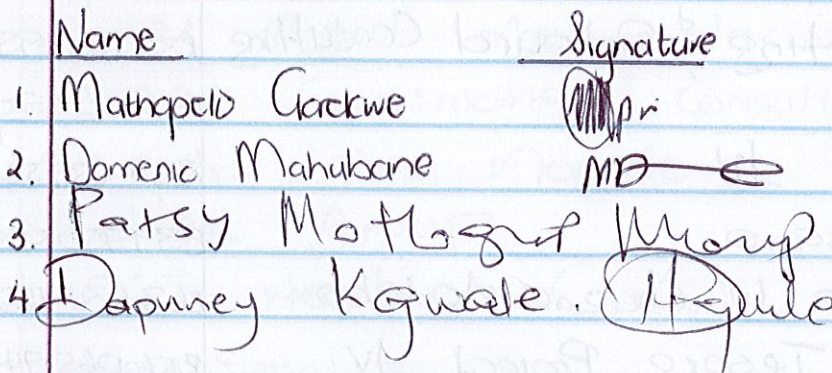 Name Signature
1. Mathapelo Gaekwe pri
2. Domenic Mahubane MD
3. Patsy
4. Dapuney Kgwale.